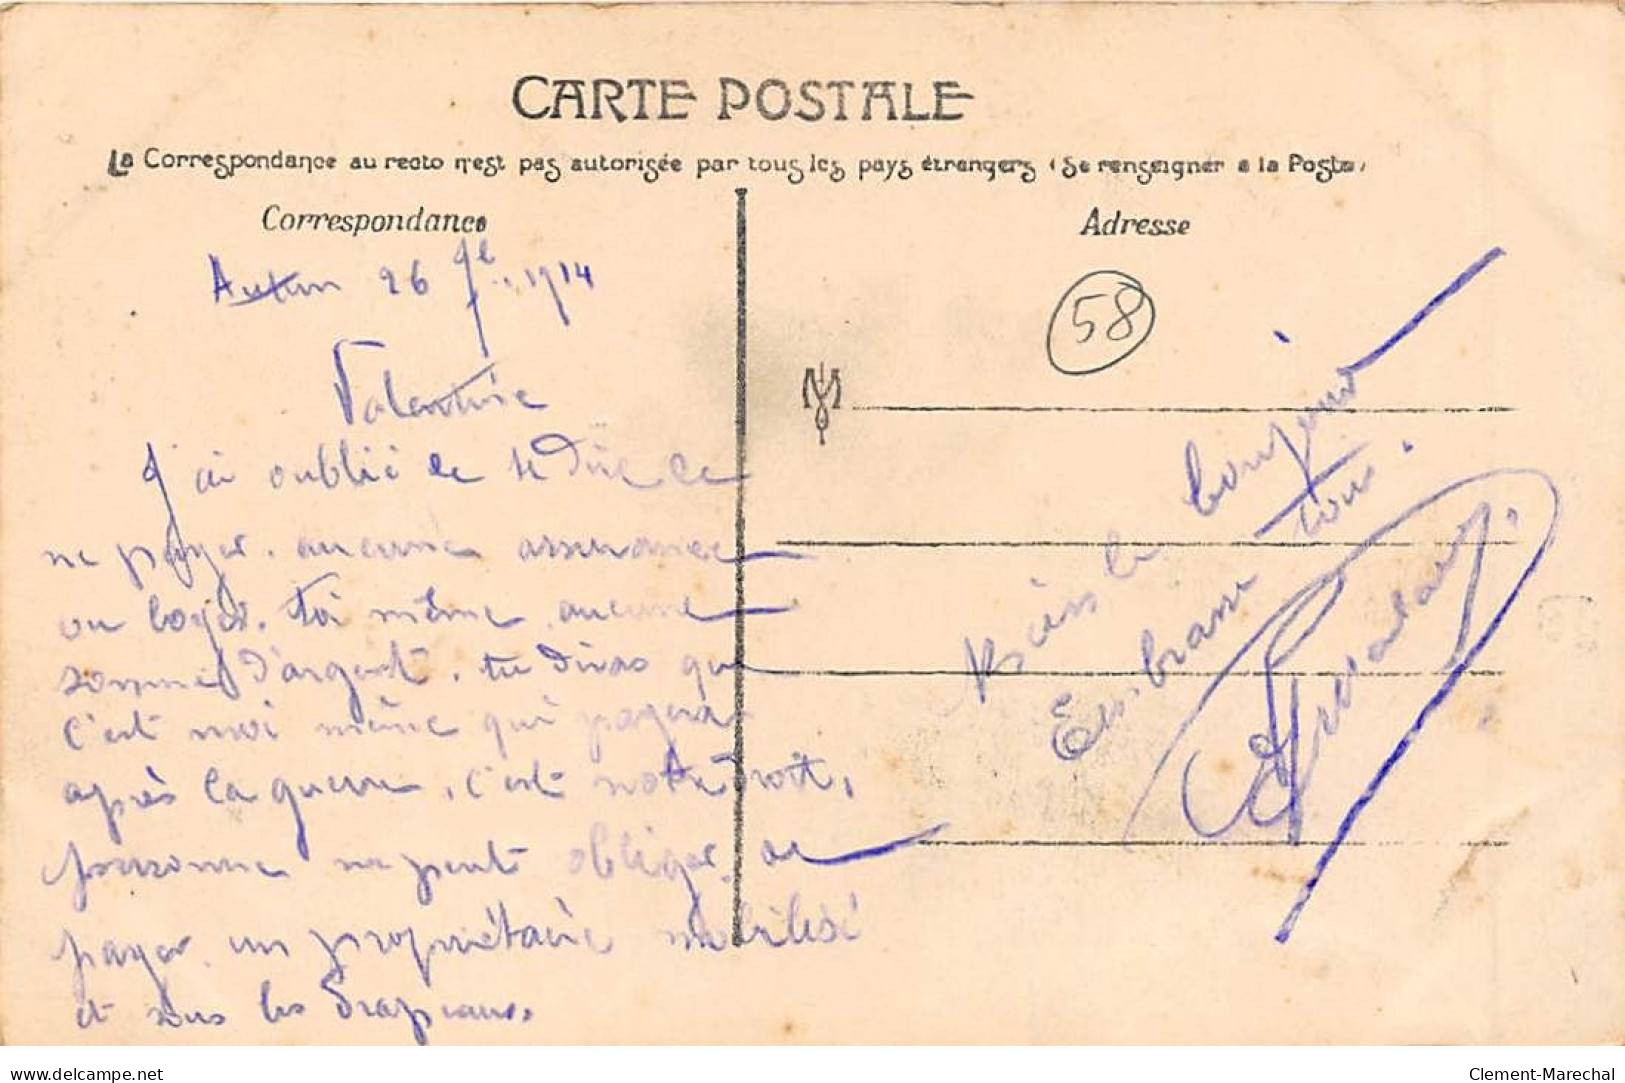 CARTE POSTALE
La Correspondance au recto n'est pas autorisée par tous les pays étrangers (Se renseigner a la Poste)
Correspondance
Adresse
58
Autun 26 9bre 1914
Valentine
J'ai oublié de te dire de
ne payer aucune assurance
ou loyer. toi même aucune
somme d'argent. tu diras que
c'est moi même qui payerai
après la guerre, c'est notre droit,
personne ne peut obliger de
payer un propriétaire mobilisé
et sous les Drapeaux.
Bien le bonjour
Embrasse tous.
www.delcampe.net
Clement-Marechal